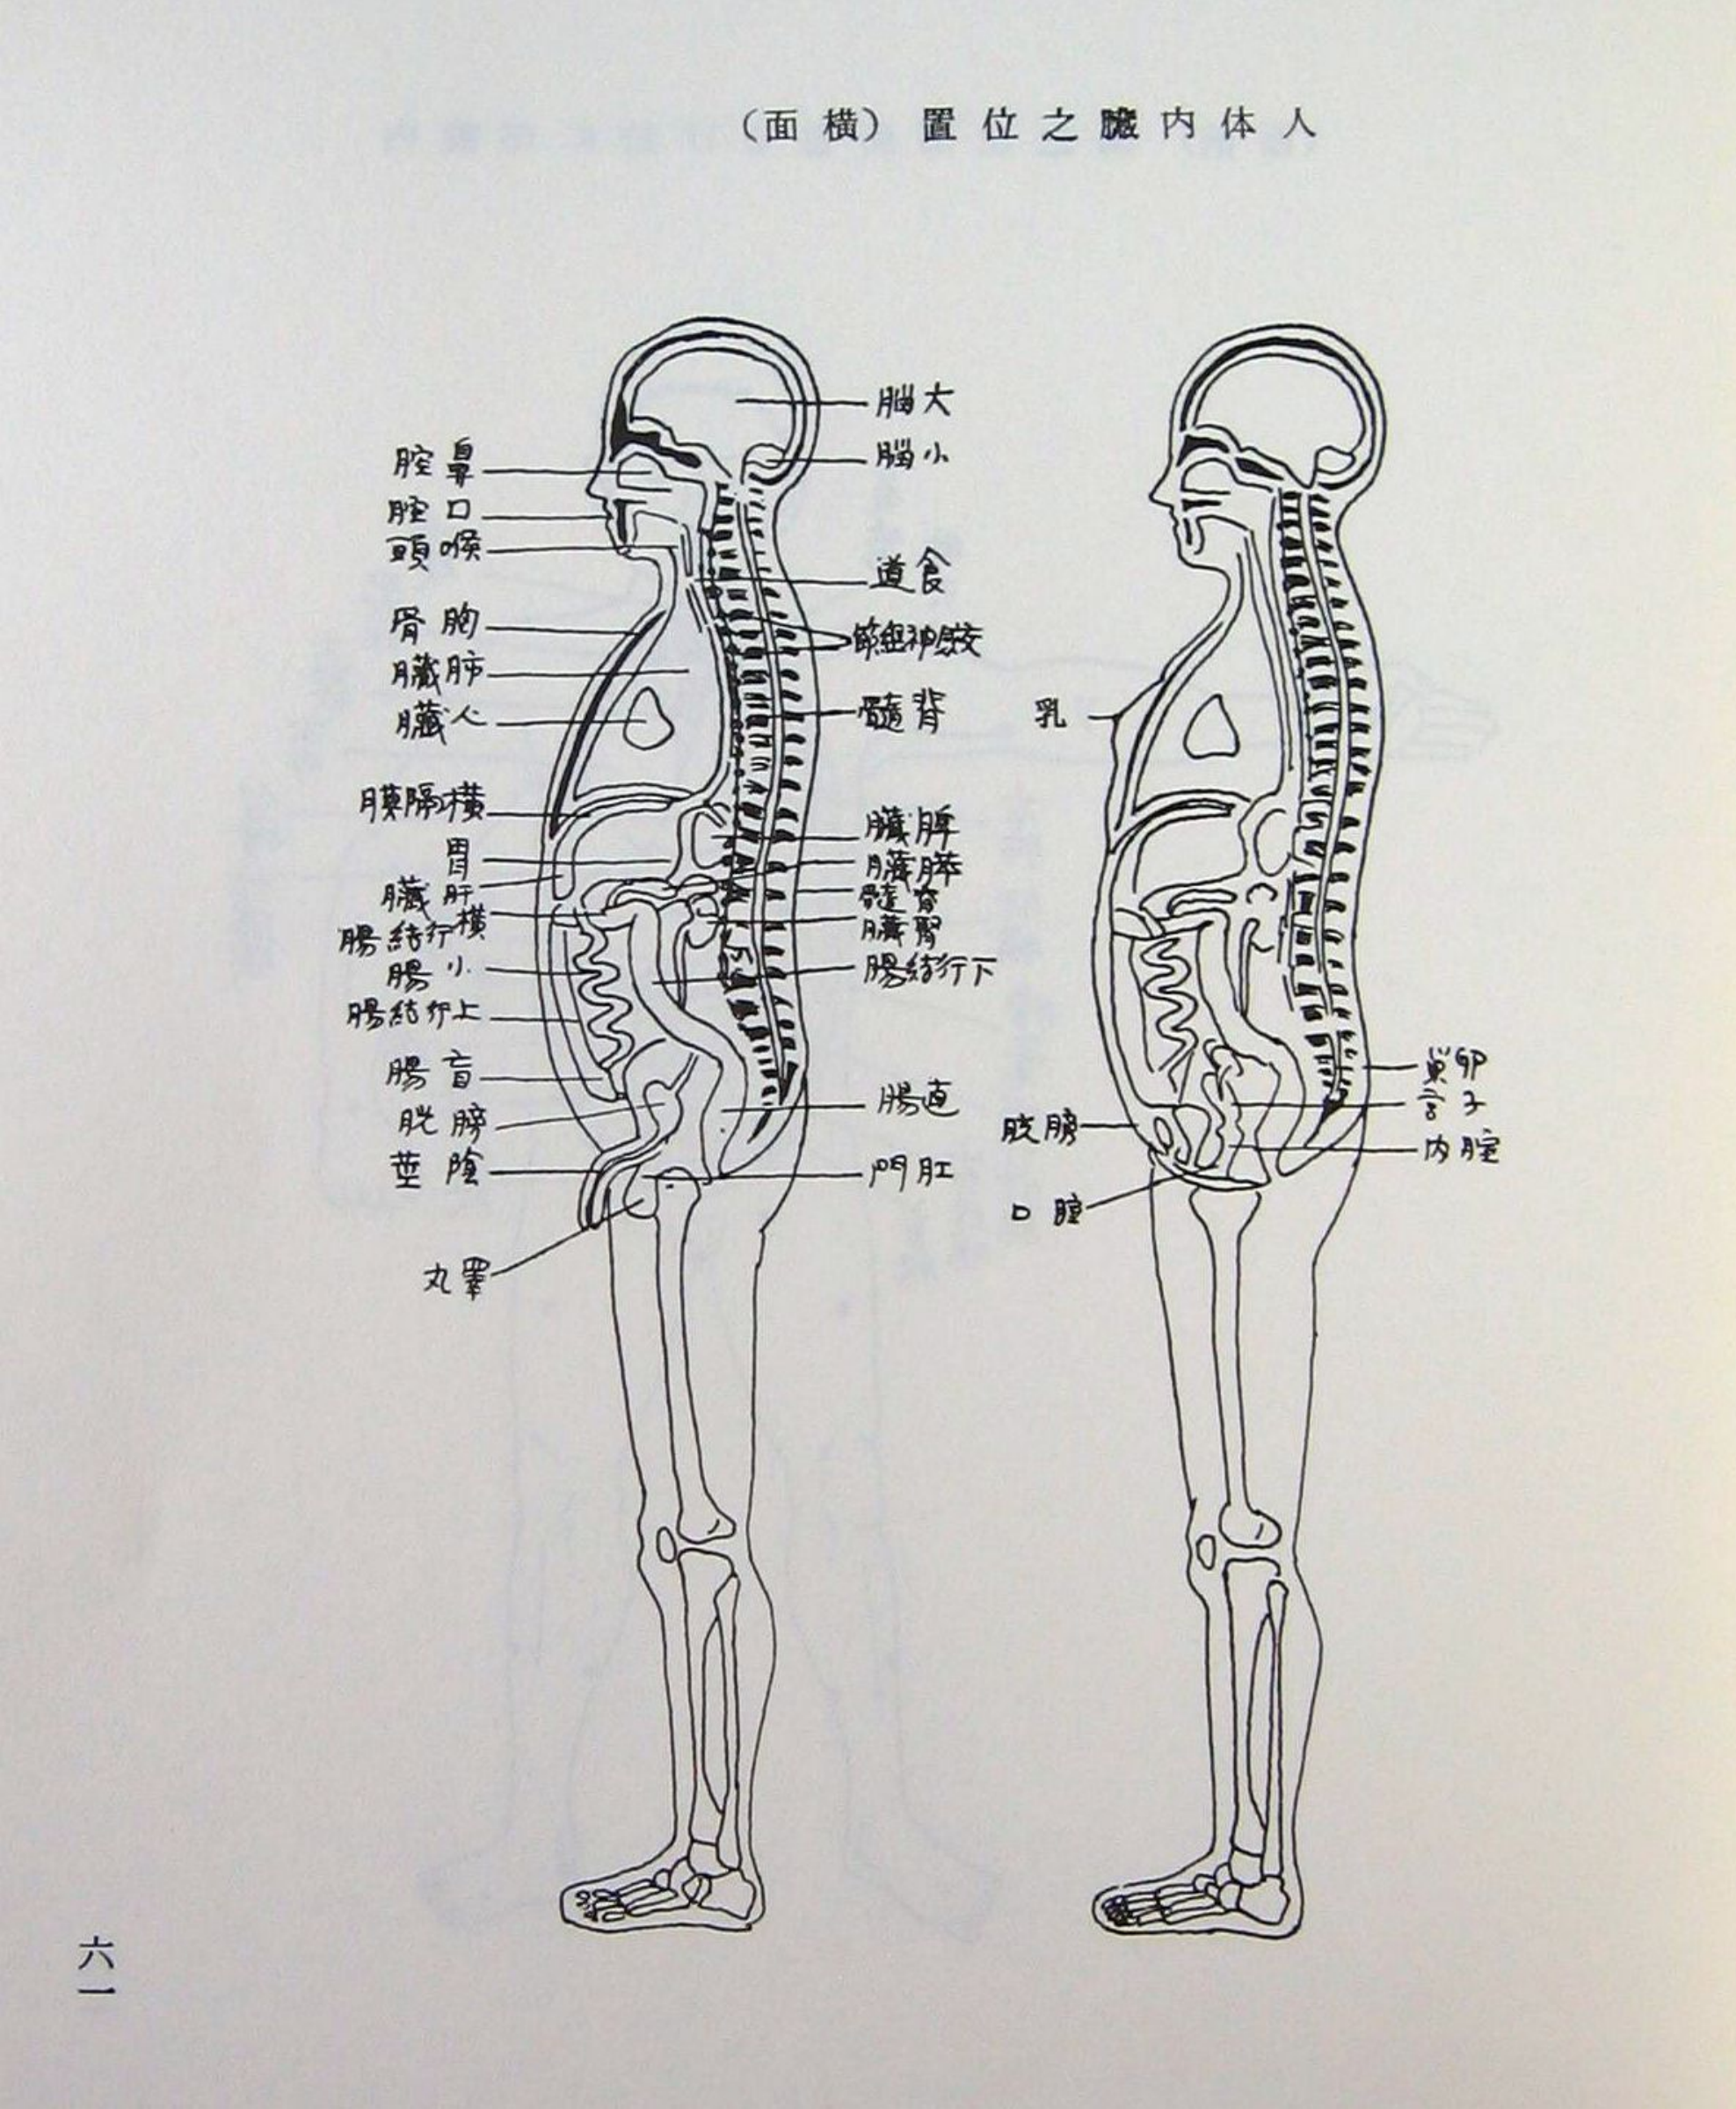 人体内臓之位置(横面)
大脳
小脳
鼻腔
口腔
喉頭
食道
胸骨
交感神経節
肺臓
背髄
心臓
乳
横隔膜
脾臓
胃
膵臓
肝臓
脊髄
横行結腸
腎臓
小腸
下行結腸
上行結腸
盲腸
直腸
膀胱
陰茎
肛門
睾丸
卵巣
子宮
膀胱
腟内
腟口
六一